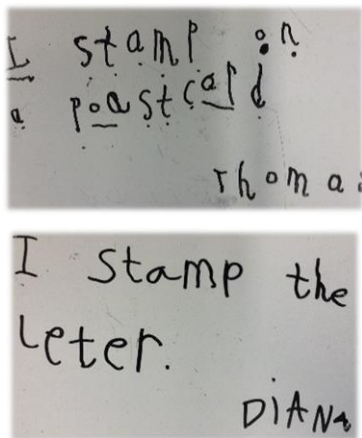 I stamp on
a poastcard
Thomas
I stamp the
leter.
DiANa